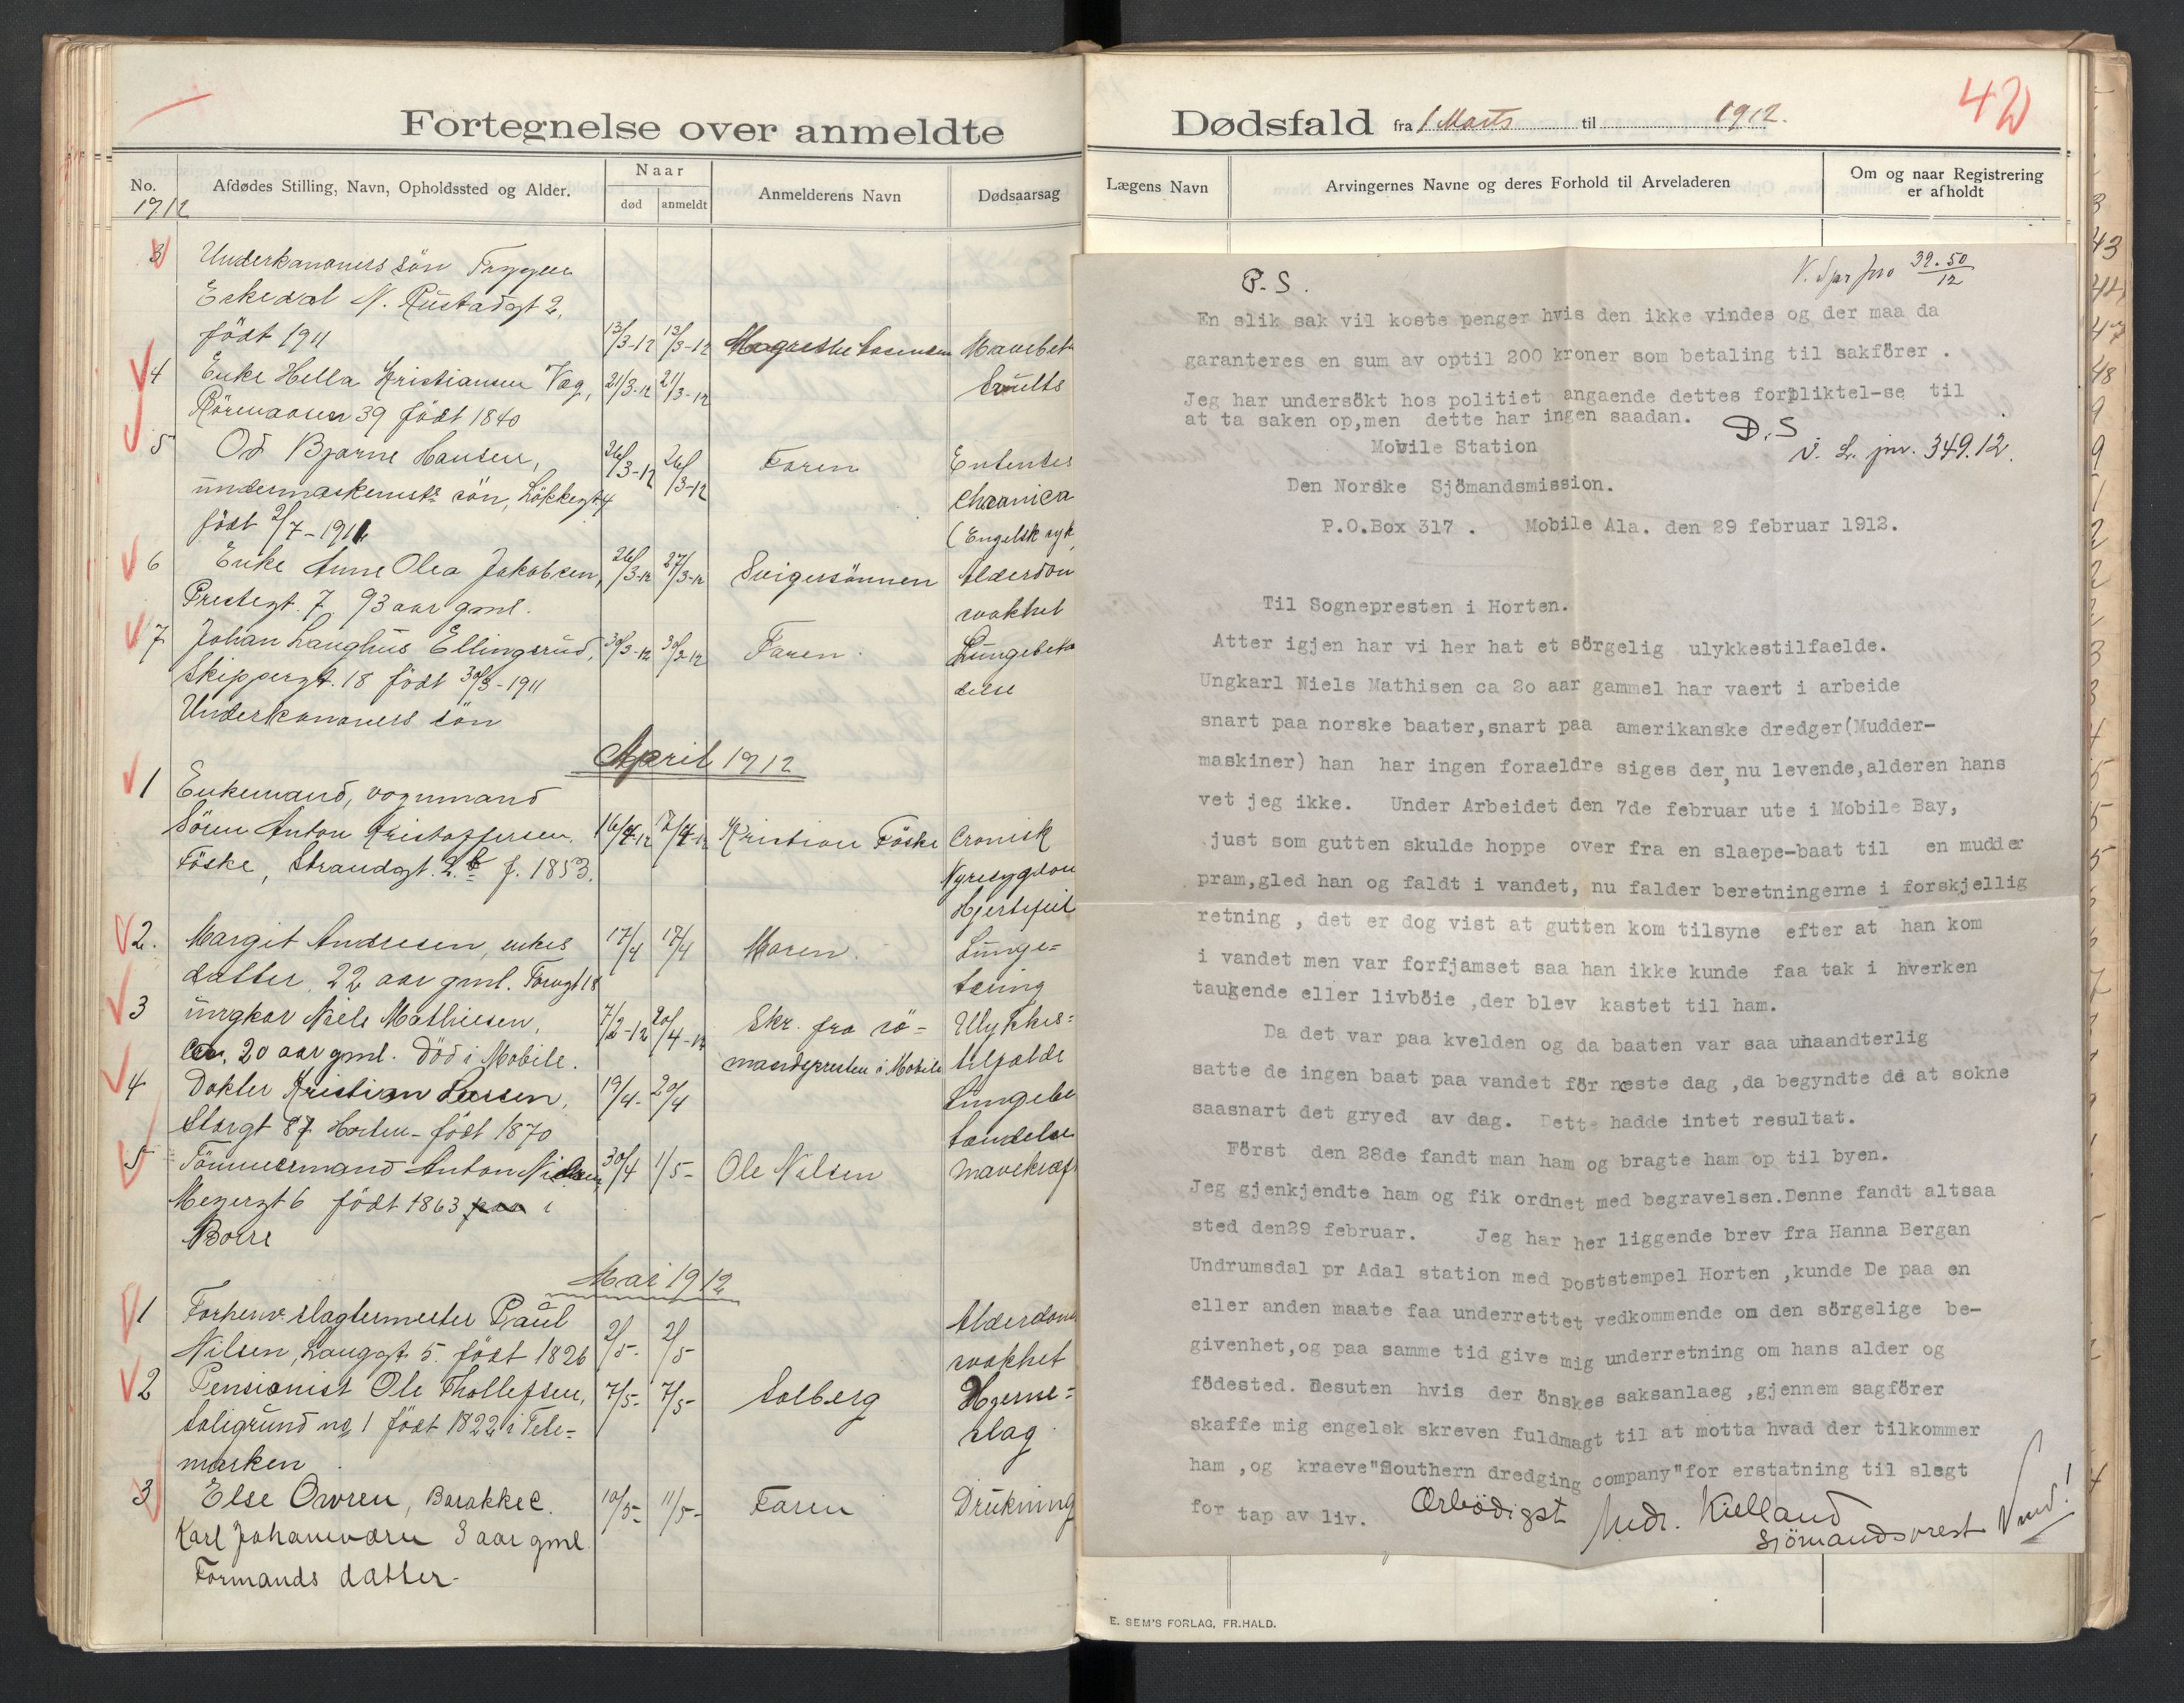 Fortegnelse over anmeldte
No.
1912
Afdødes Stilling, Navn, Opholdssted og Alder.
Naar
død
anmeldt
Anmelderens Navn
Dødsaarsag
3 Underkanoners sön
Eskedal N. Rustadgt 2,
födt 1911 13/3-12 13/3-12
4 Enke Hella Kristiansen Væg, 21/3-12 21/3-12
39 födt 1840
5 Od Bjarne Hansen, 26/3-12 26/3-12 Faren
sön, Løkkegt 4 chronica
födt 2/7-1911 (Engelsk syk
6 Enke Anne Olea Jakobsen, 26/3-12 27/3-12 Svigersönnen Alderdom
Prestegt. 7, 93 aar gml. svakhet
7 Johan Langhus Ellingsrud, 30/3-12 Faren Lungebet
Skippergt. 18 födt 1911 delse
Underkanoners sön
April 1912
1 Enkemand, vognmand
Sören Anton Kristoffersen 16/4-12 17/4-12 Kristian Föske Cronisk
Föske, Strandgt. 2 b f. 1853. Nyresygdom
Hjertefeil
2. Margit Andresen, enkes 17/4 17/4 Moren. Lunge-
datter, 22 aar gml. Torvgt 18 tæring
3 ungkar Niels Mathiesen, 7/2-12 20/4-12 Skr. fra sö- Ulykkes-
ca. 20 aar gml. Död i Mobile. mandspresten i Mobile tilfælde
4 Dokter Kristian Larsen, 19/4- 20/4 Lungebe
Storgt 87 Horten - födt 1870 tændelse
5 Tömmermand Anton Nielsen 30/4 1/5- Ole Nilsen Mavekræft
Megergt 6 födt 1863 i
Borre
Mai 1912
1 Forhenv. slagtermester Paul Alderdoms
Nilsen, Langgt. 5. födt 1826 2/5- 2/5 svakhet
2 Pensionist Ole Thollefsen, 7/5- 7/5- Solberg Hjerne-
no 1 födt 1822 i Tele-slag
marken
3 Else Owren, Barakke C. 10/5- 11/5- Faren Drukning
Karl Johansværn 3 aar gml
Formands datter-
Dødsfald fra 1 Marts til 1912.
42
Lægens Navn
Arvingernes Navne og deres Forhold til Arveladeren
Om og naar Registrering
er afholdt
P.S. 32.50/12
En slik sak vil koste penger hvis den ikke vindes og der maa da
garanteres en sum av optil 200 kroner som betaling til sakförer .
Jeg har undersökt hos politiet angaende dettes forpliktel-se til
at ta saken op,men dette har ingen saadan. D.S
V. L. jnr. 349.12.
Mobile Station
Den Norske Sjömandsmission.
P.O.Box 317 . Mobile Ala. den 29 februar 1912.
Til Sognepresten i Horten.
Atter igjen har vi her hat et sörgelig ulykkestilfaelde.
Ungkarl Niels Mathisen ca 2o aar gammel har vaert i arbeide
snart paa norske baater,snart paa amerikanske dredger(Mudder-
maskiner) han har ingen foraeldre siges der, nu levende,alderen hans
vet jeg ikke. Under Arbeidet den 7de februar ute i Mobile Bay,
just som gutten skulde hoppe over fra en slaepe-baat til en mudder
pram,gled han og faldt i vandet, nu falder beretningerne i forskjellig
retning , det er dog vist at gutten kom tilsyne efter at han kom
i vandet men var forfjamset saa han ikke kunde faa tak i hverken
taugende eller livböie ,der blev kastet til ham.
Da det var paa kvelden og da baaten var saa uhaandterlig
satte de ingen baat paa vandet för neste dag ,da begyndte de at sokne
saasnart det gryed av dag. Dette hadde intet resultat.
Först den 28de fandt man ham og bragte ham op til byen.
Jeg gjenkjendte ham og fik ordnet med begravelsen.Denne fandt altsaa
sted den29 februar. Jeg har her liggende brev fra Hanna Bergan
Undrumsdal pr Adal station med poststempel Horten ,kunde De paa en
eller anden maate faa underrettet vedkommende om den sörgelige be-
givenhet,og paa samme tid give mig underretning om hans alder og
födested. Desuten hvis der önskes saksanlaeg ,gjennem sagförer
skaffe mig engelsk skreven fuldmagt til at motta hvad der tilkommer
ham ,og kraeve"Southern dredging company"for erstatning til slegt
for tap av liv. Ærbödigst Andr. Kielland
Sjömandsprest Vend!
E. SEM'S FORLAG, FR.HALD.